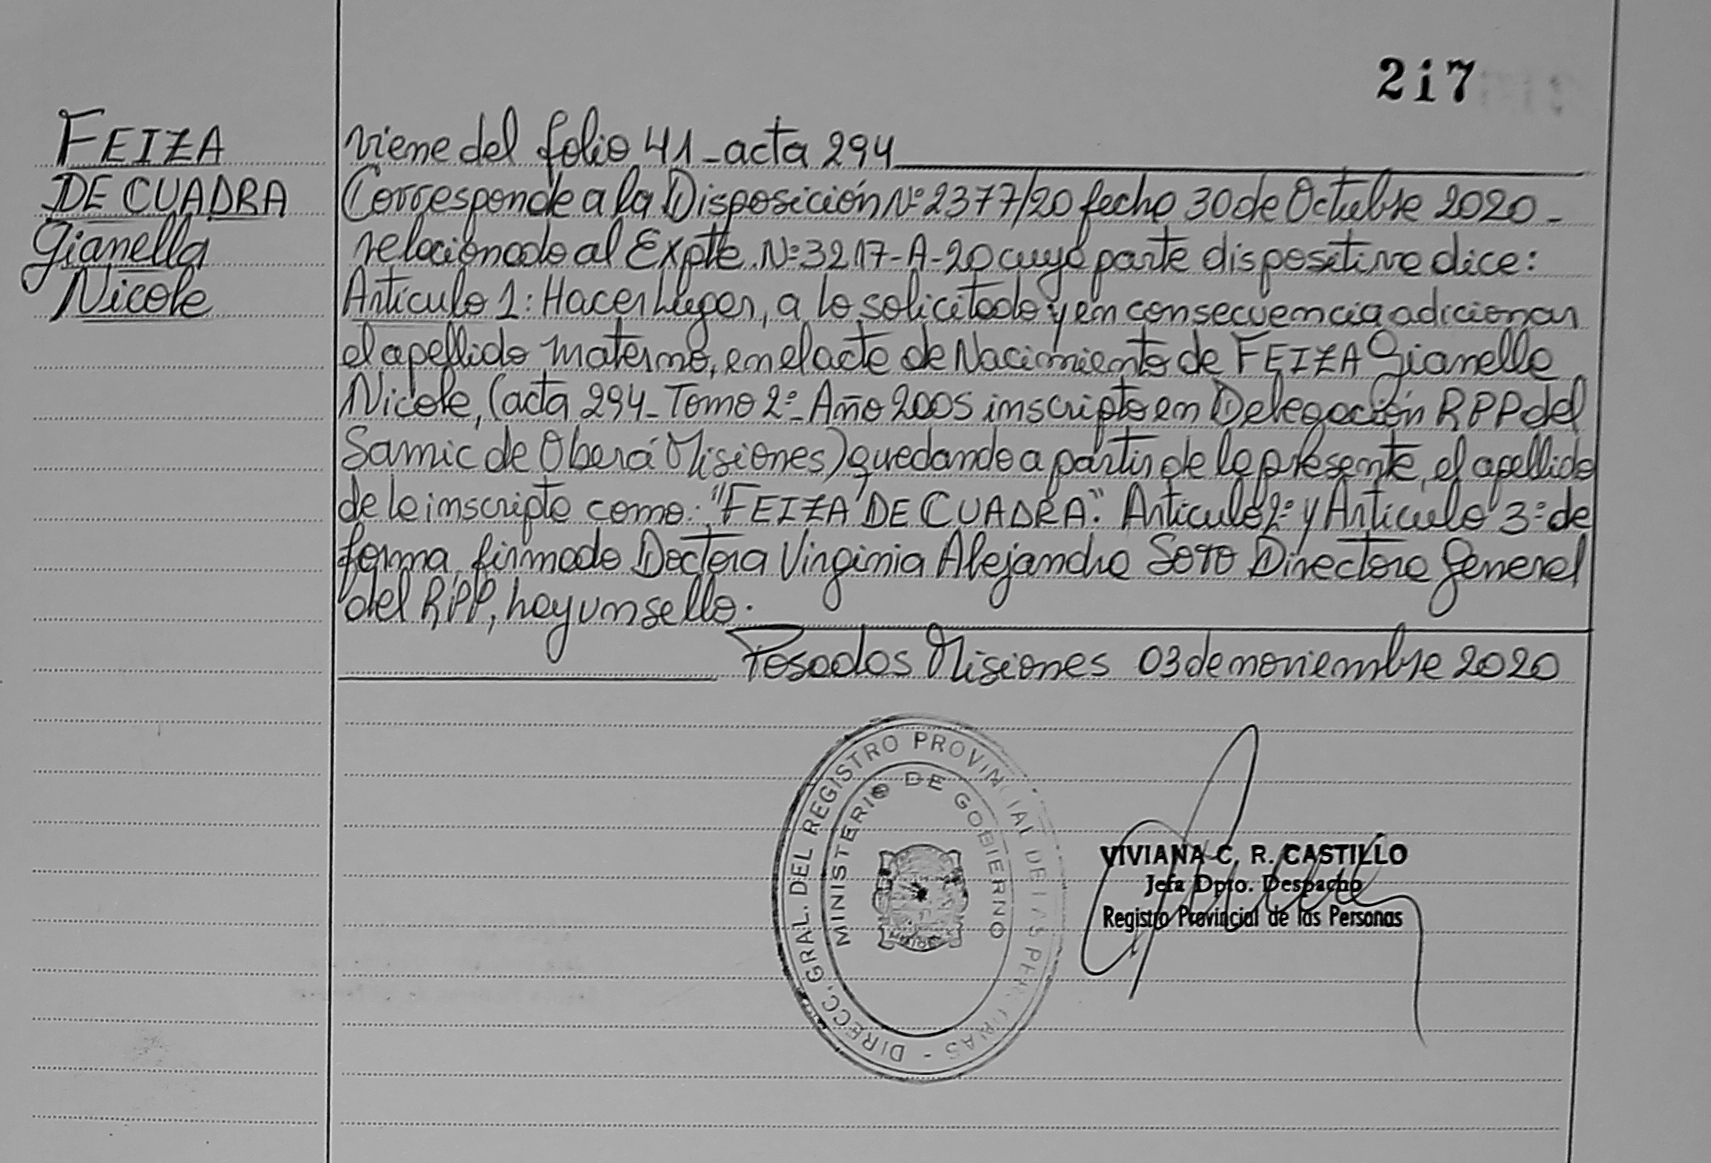 217
FEIZA
DE CUADRA
Gianella
Nicole
viene del folio 41-acta 294
Corresponde a la Disposición Nº 2377/20 fecha 30 de Octubre 2020-
relacionado al Expte. Nº 3217-A-20 cuya parte dispositiva dice:
Artículo 1: Hacer lugar, a lo solicitado y en consecuencia adicionar
el apellido materno, en el acta de Nacimiento de FEIZA Gianella
Nicole, (acta 294-Tomo 2º-Año 2005 inscripta en Delegación RPP del
Samic de Oberá Misiones) quedando a partir de la presente, el apellido
de la inscripta como: "FEIZA DE CUADRA". Artículo 2º y Artículo 3º de
forma, firmado Doctora Virginia Alejandra Soto Directora General
del RPP, hay un sello.
Posadas Misiones 03 de noviembre 2020
DIRECC. GRAL. DEL REGISTRO PROVINCIAL DE LAS PERSONAS -
MINISTERIO DE GOBIERNO
VIVIANA C. R. CASTILLO
Jefa Dpto. Despacho
Registro Provincial de las Personas